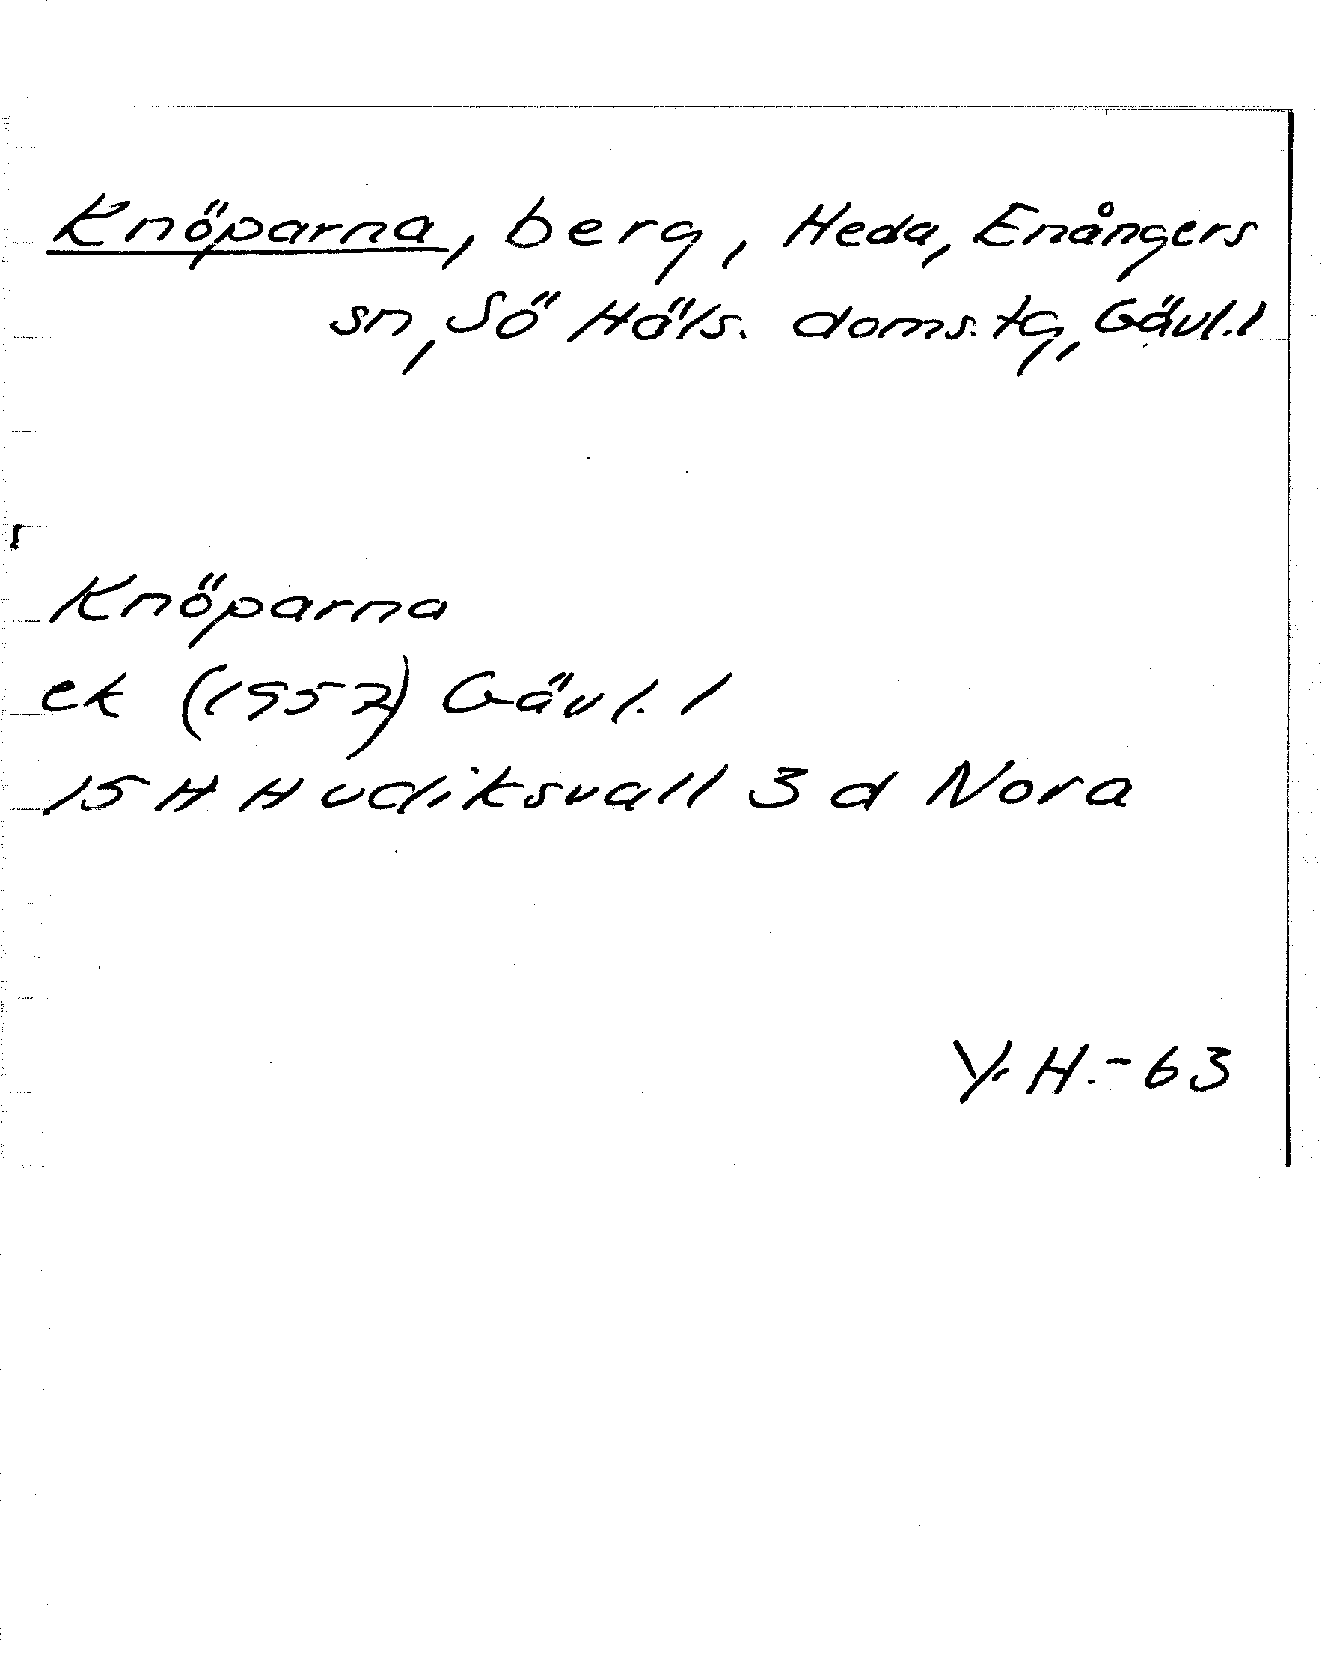 Knöparna, berg, Heda, Enångers
sn, Sö Häls. doms.tg, Gävl.l
Knöparna
ek (1957) Gävl. l
15 H Hudiksvall 3 d Nora
Y. H. - 63